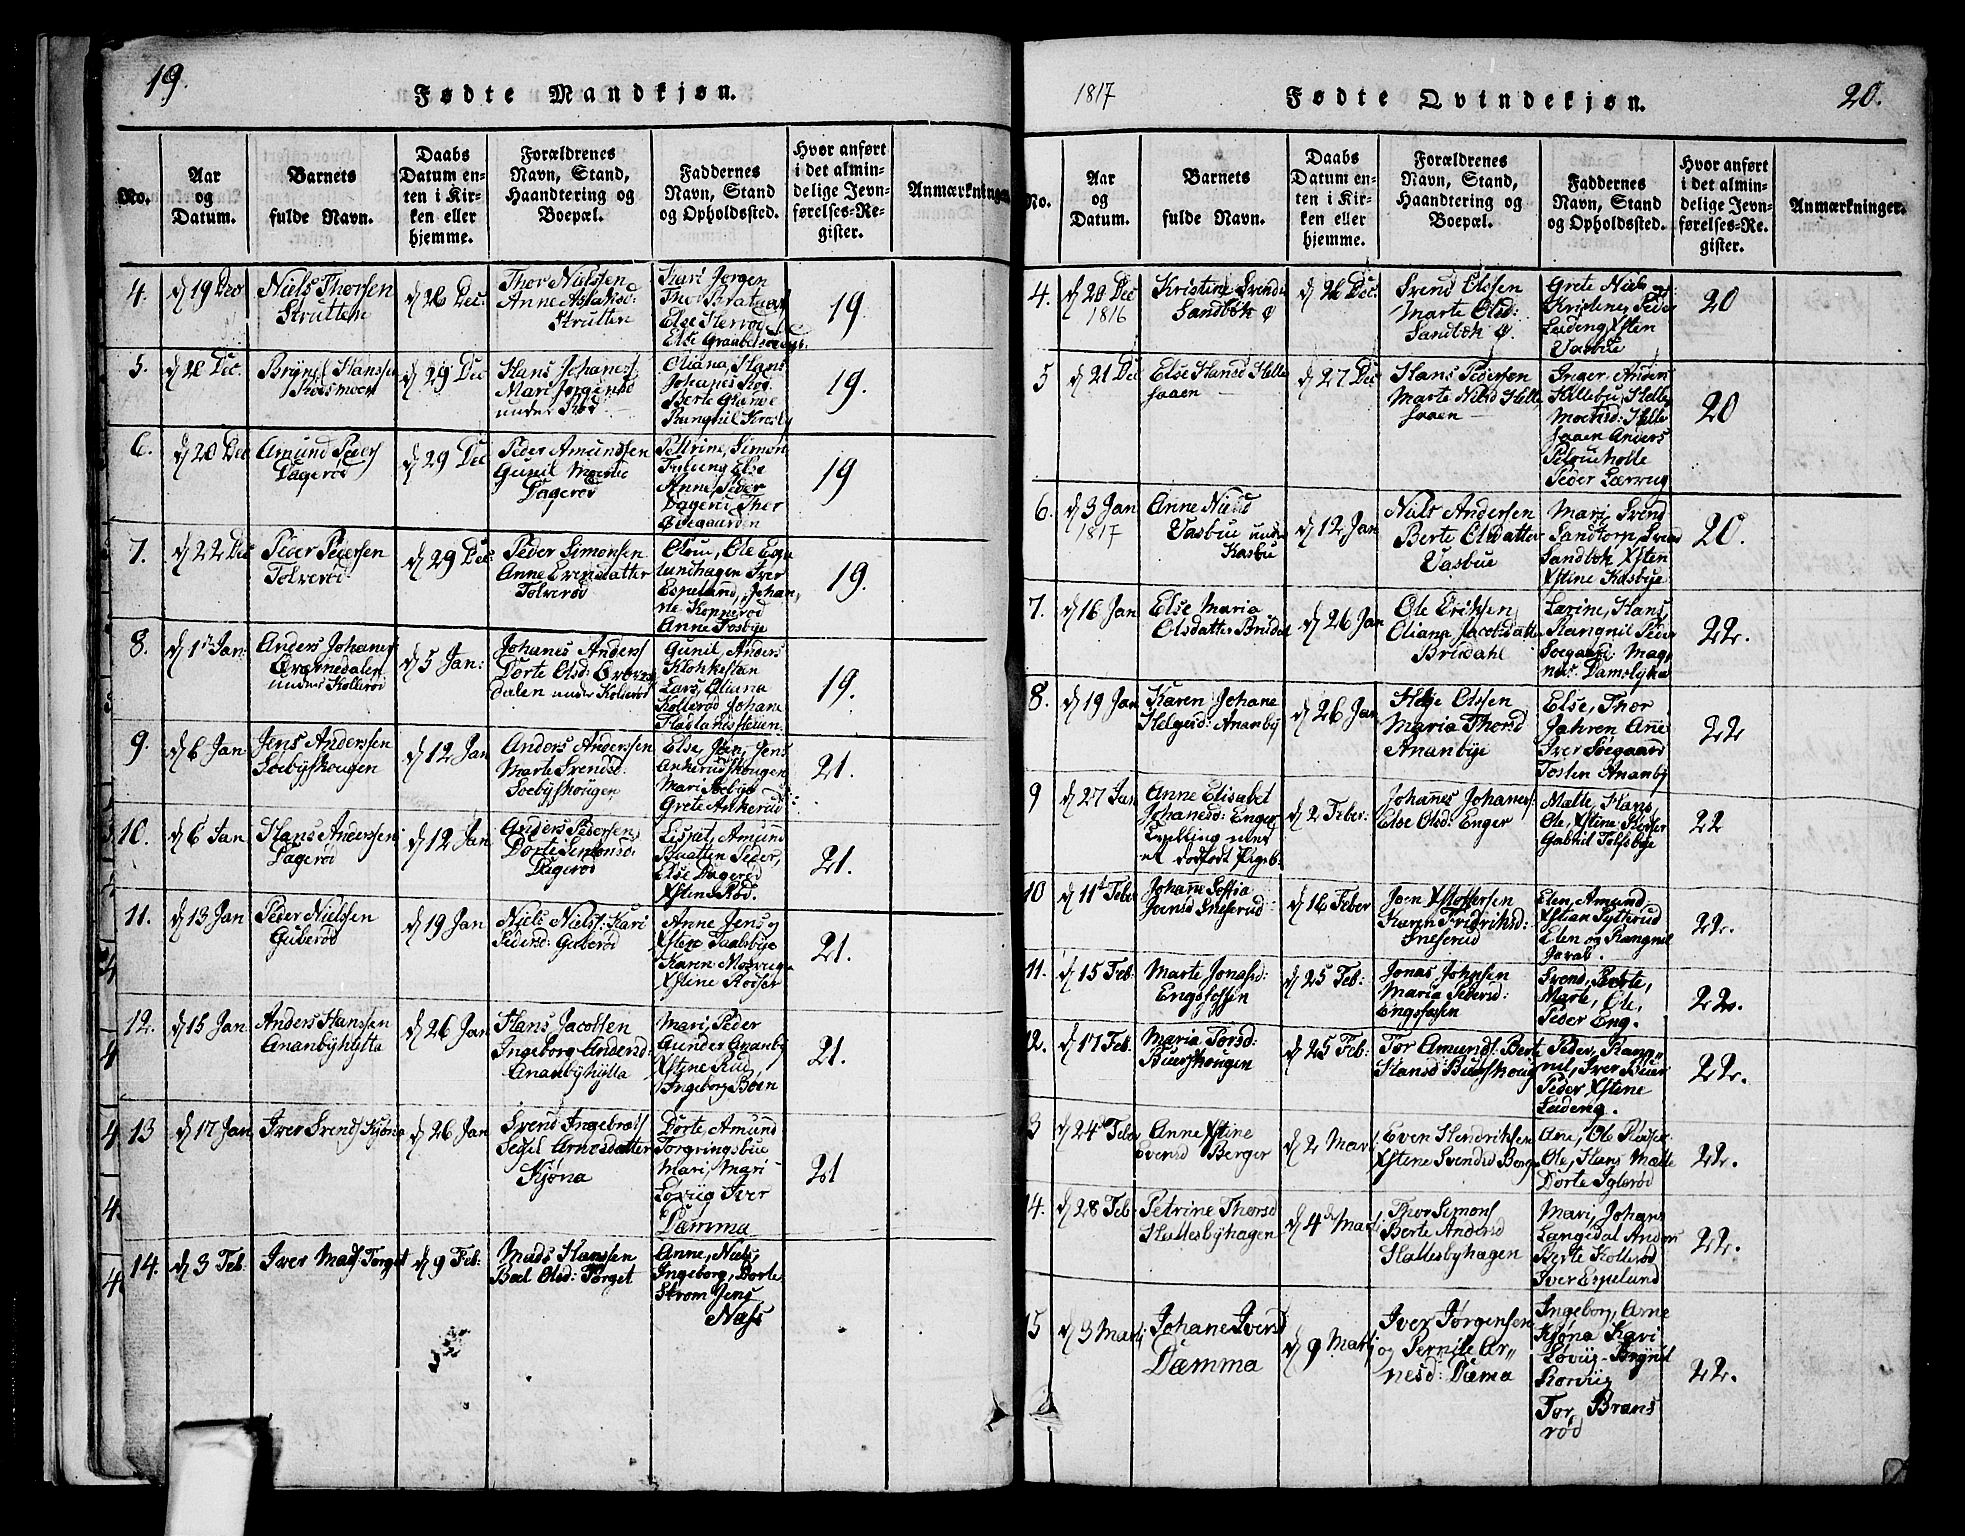 19.
Fødte Mandkjøn.
No.
Aar
og
Datum.
Barnets
fulde Navn.
Daabs
Datum en-
ten i Kir-
ken eller
hjemme.
Forældrenes
Navn, Stand,
Haandtering og
Boepæl.
Faddernes
Navn, Stand
og Opholdssted.
Hvor anført
i det almin-
delige Jevn-
førelses-Re-
gister.
Anmærkninger
4.
d 19 Dec
Niels Thorsen
Strutten
d 26 Dec:
Thor Nielssen
Anne Aslaksd:
Strutten
Kari Jørgen
Thor Brataas
Else
Else
19.
5.
Dec.
Hanssen
d 29 Dec
Hans Johanes
Mari Jørgensd
under Rød
Oliana, Hans
Johanes Rød
Berte
19.
6.
d 20 Dec
Amund Peders
Dagerød
d 29 Dec
Peder Amundssen
Gunil
Dagerød
Pettrine, Simon
Else
Anne Peder
Dagerød Thor
19
7.
d 22 Dec
Peder Pedersen
Tolverød
d 29 Dec:
Peder Simonsen
Anne Evensdatter
Tolverød
Ole
Iver
Espelund, Johan
ne Kopperød
Anne Fosbye
19.
8.
d 1st Jan:
Anders Johanes
under Kollerød
d 5 Jan:
Johanes Anders
Dorte Olsd:
dalen under Kolerød
Gunil, Anders
Lars, Oliana
Kollerød Johane
19.
9.
d 6 Jan
Jens Anderssen
Soebyskougen
d 12 Jan
Anders Anderssen
Marte Svendsd
Soebyskougen
Else, Jan, Jens
Ankerudskougen
Mari Soebye
Grete Ankerud
21.
10.
d 6 Jan
Hans Anderssen
Dagerød
d 12 Jan
Anders Pedersen
Dorte Simonsd:
Dagerød
Lisbet, Amund
Braatten Peder,
Else Dagerød
Xstine Rød.
21.
11.
d 13 Jan
Peder Nielssen
Guberød
d 19 Jan
Niels Niels: Kari
Pedersd: Guberød
Anne Jens og
Xsten
Karen
Xstene
21.
12.
d 15 Jan
Anders Hanssen
Ananbyhytta
d 26 Jan
Hans Jacobsen
Ingeborg Andersd:
Ananbyhytta
Mari, Peder
Gunder Ananby
Xstine Rud,
Ingeborg Boen
21.
13
d 17 Jan
Iver Svends Kjøna
d 26 Jan
Svend Ingebrets
Sedsel Arnesdatter
Kjøna
Dorte Amund
Torgringsbue
Mari, Mari
Løvüg Iver
Dæmma
21
14.
d 3 Feb.
Iver Mads: Torget
d 9 Feb:
Mads Hanssen
Boel Olsd: Torget
Anne, Niels,
Ingeborg, Dorte
Strøm Jens
Næss
1817
Fødte Qvindekjøn.
20.
No.
Aar
og
Datum.
Barnets
fulde Navn.
Daabs
Datum en-
ten i Kir-
ken eller
hjemme.
Forældrenes
Navn, Stand,
Haandtering og
Boepæl.
Faddernes
Navn, Stand
og Opholdssted.
Hvor anført
i det almin-
delige Jevn-
førelses-Re-
gister.
Anmærkninger.
4.
d 20 Dec
1816
Kristine Svends
Sandbøk
d 26 Dec:
Svend Olssen
Marte Olsd:
Sandbøk
Grete Niels
Kristine, Peder
Leideng, Xsten
Vasbue
20
5
d 21 Dec
Else Hansd Helle
saaen
d 27 Dec
Hans Pedersen
Marte Nilsd Helle
saaen
Inger Anders
Killebu, Helle
saaen Anders
Peder
20
6.
d 3 Jan
1817
Anne Nielsd
Vasbue under
Kasbu
d 12 Jan
Niels Andersen
Berte Olsdatter
Vasbue
Mari, Svend
Sandtorp, Svend
Sandbøk Xsten
Xstine Kasbye
20.
7.
d 16 Jan
Else Maria
Olsdatter Brudal
d 26 Jan
Ole Eriksen
Oliana Jacobsdatter
Brudahl
Larine, Hans
Rangnil Peder
Soegaard: Mag
nus: Damslyka
22.
8.
d 19 Jan
Karen Johane
Helgesd: Ananby
d 26 Jan
Helge Olssen
Maria Thorsd
Ananbye
Else, Thor
Jahren Ane
Iver Soegaard
Tosten Ananby
22
9
d 27 Jan
Anne Elisabet
Johanesd: Enger
Tvilling med
et dødfødt Pigeb.
d 2 Feber:
Johanes Johanes
Else Olsd: Enger
Mette, Hans,
Ole, Xstine
Gabriel
22
10
d 11te Feber
Johane Soffia
Joensd Sneserud
d 16 Feber
Joen Xstoffersen
Karen Fridriksd:
Sneserud
Elen, Amund,
Xstian
Elen og Rangnil
22.
11.
d 15 Feb:
Marte Jonasd:
Engsløssen
d 25 Feb:
Jonas Johnsen
Maria Pedersd:
Svend, Berte,
Marte, Ole,
Peder Eng.
22.
12.
d 17 Feb.
Maria Torsd:
Buerskougen
d 25 Feb:
Tor Amunds: Berte
Hansd Buerskoug
Peder, Ran
nil, Iver Buer
Peder Xstine
Leideng.
22.
3
d 24de Feber
Anne Xstine
Evensd Berger
d 2 Marti
Even Hendriksen
Xstene Svendsd Berg
Ane, Ole
Ole, Hans Mætte
Dorte Iglerød
22.
14.
d 28 Feb:
Petrine Thorsd
Hallesbyhagen
d 4de Marti
Thor Simons
Berte Andersd
Hallesbyhagen
Mari, Johans
Langedal Anders
Berte Kollerød
Iver Espelund
22.
15
d 3 Marti
Johane Iversd
Dæmma
d 9 Marti
Iver Jørgensen
og Pernile Ar
nesd: Dæma
Ingeborg, Arne
Kjøna Kari
Løvüg
Rørvüg
Tor, Brans
rød
22.